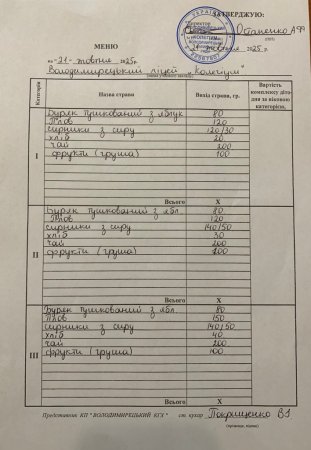 ЗАТВЕРДЖУЮ:
Остапенко АФ
МЕНЮ
на "21" жовтня 2025р.
"21" жовтня 2025 р.
Володимирецький ліцей "Колегіум"
Категорія
Назва страви
Вихід страви, гр.
Вартість комплекту діто-дня за віковою категорією,
I
Буряк тушкований з яблук 80
Плов 120
сирники з сиру 120/30
хліб 20
чай 200
фрукти (груша) 100
Всього X
II
Буряк тушкований з ябл. 80
Плов 120
сирники з сиру 140/50
хліб 30
чай 200
фрукти (груша) 100
Всього X
III
Буряк тушкований з ябл. 80
Плов 150
сирники з сиру 140/50
хліб 40
чай 200
фрукти (груша) 100
Всього X
Представник КП "ВОЛОДИМИРЕЦЬКИЙ КГХ" ст. кухар Покрищенко ВІ